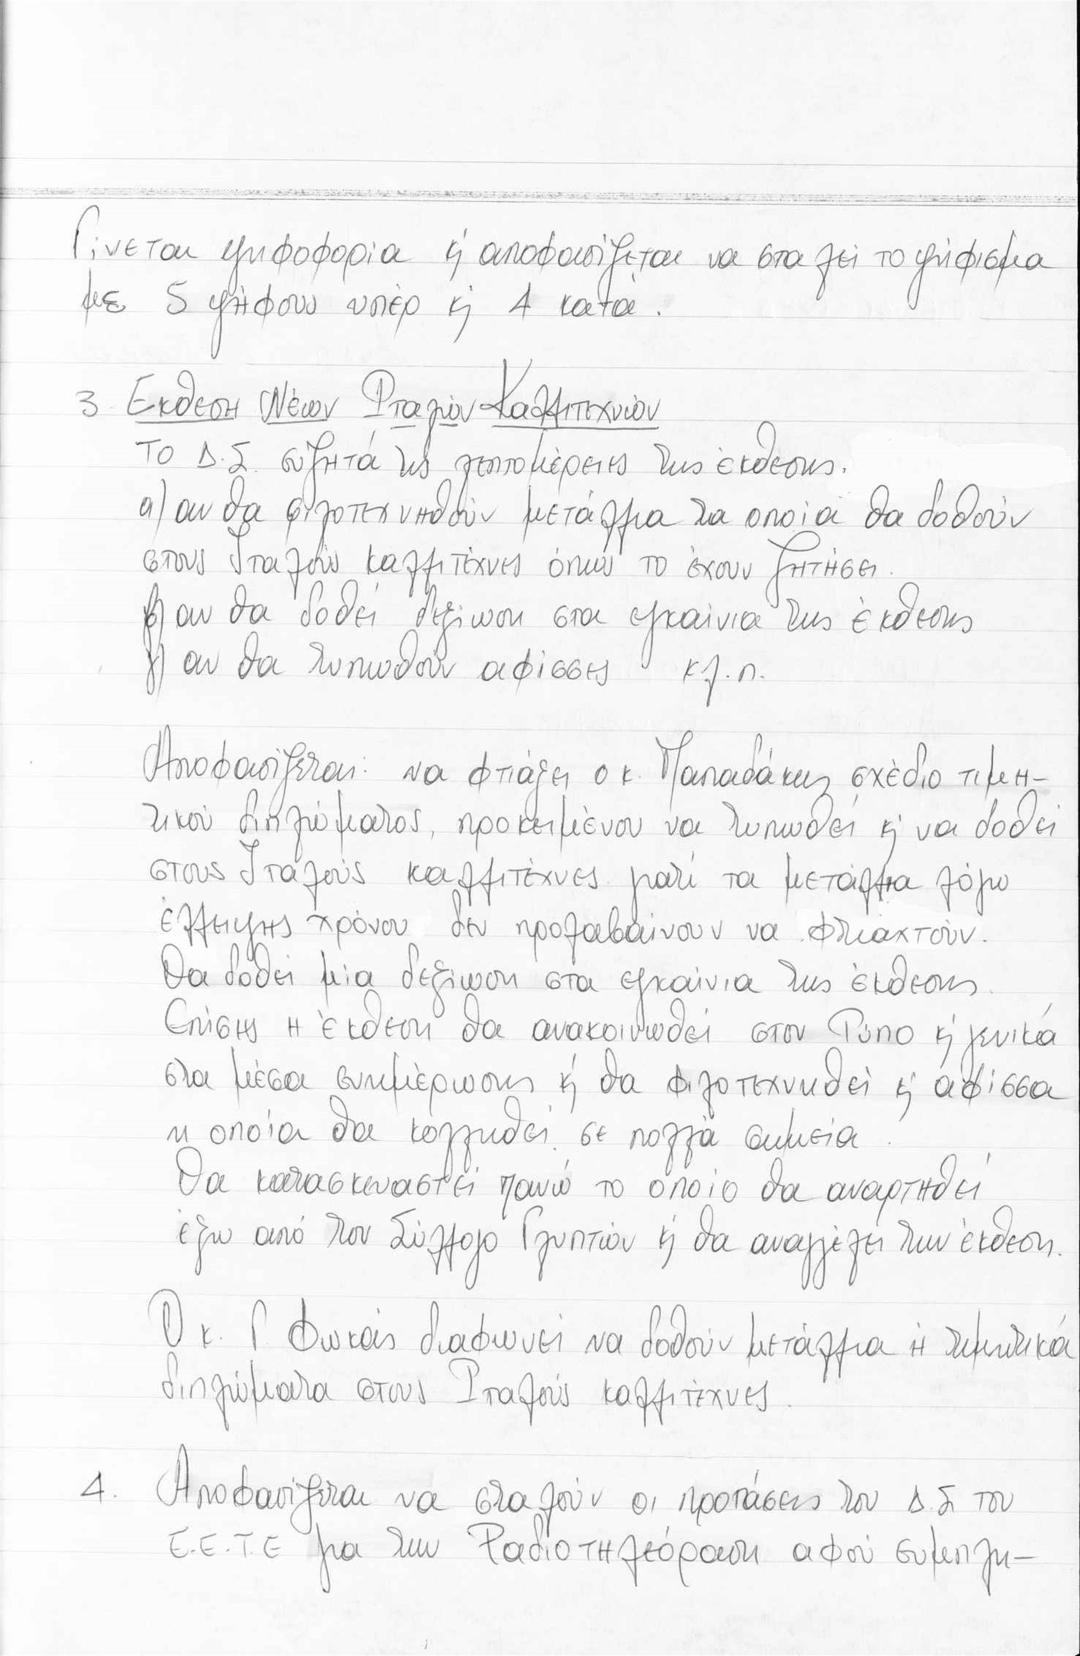 Γίνεται ψηφοφορία κ̓ αποφασίζεται να σταλεί το ψήφισμα
με 5 ψήφους υπέρ κ̓ 4 κατά.
3. Έκθεση Νέων Ιταλών Καλλιτεχνών
Το Δ.Σ. συζητά τις λεπτομέρειες της έκθεσης.
α) αν θα φιλοτεχνηθούν μετάλλια τα οποία θα δοθούν
στους Ιταλούς καλλιτέχνες όπως το έχουν ζητήσει.
β) αν θα δοθεί δεξίωση στα εγκαίνια της έκθεσης
γ) αν θα τυπωθούν αφίσσες κ.λ.π.
Αποφασίζεται: να φτιάξει ο κ. Παπαδάκης σχέδιο τιμη-
τικού διπλώματος, προκειμένου να τυπωθεί κ̓ να δοθεί
στους Ιταλούς καλλιτέχνες γιατί τα μετάλλια λόγω
έλλειψης χρόνου δεν προλαβαίνουν να φτιαχτούν.
Θα δοθεί μία δεξίωση στα εγκαίνια της έκθεσης.
Επίσης η έκθεση θα ανακοινωθεί στον Τύπο κ̓ γενικά
στα μέσα ενημέρωσης κ̓ θα φιλοτεχνηθεί κ̓ αφίσσα
η οποία θα κολληθεί σε πολλά σημεία.
Θα κατασκευαστεί πανώ το οποίο θα αναρτηθεί
έξω από τον Σύλλογο Γλυπτών κ̓ θα αναγγέλει την έκθεση.
Ο κ. Γ Φωκάς διαφωνεί να δοθούν μετάλλια ή τιμητικά
διπλώματα στους Ιταλούς καλλιτέχνες.
4. Αποφασίζεται να σταλούν οι προτάσεις του Δ.Σ του
Ε.Ε.Τ.Ε για την Ραδιοτηλεόραση αφού συμπλη-